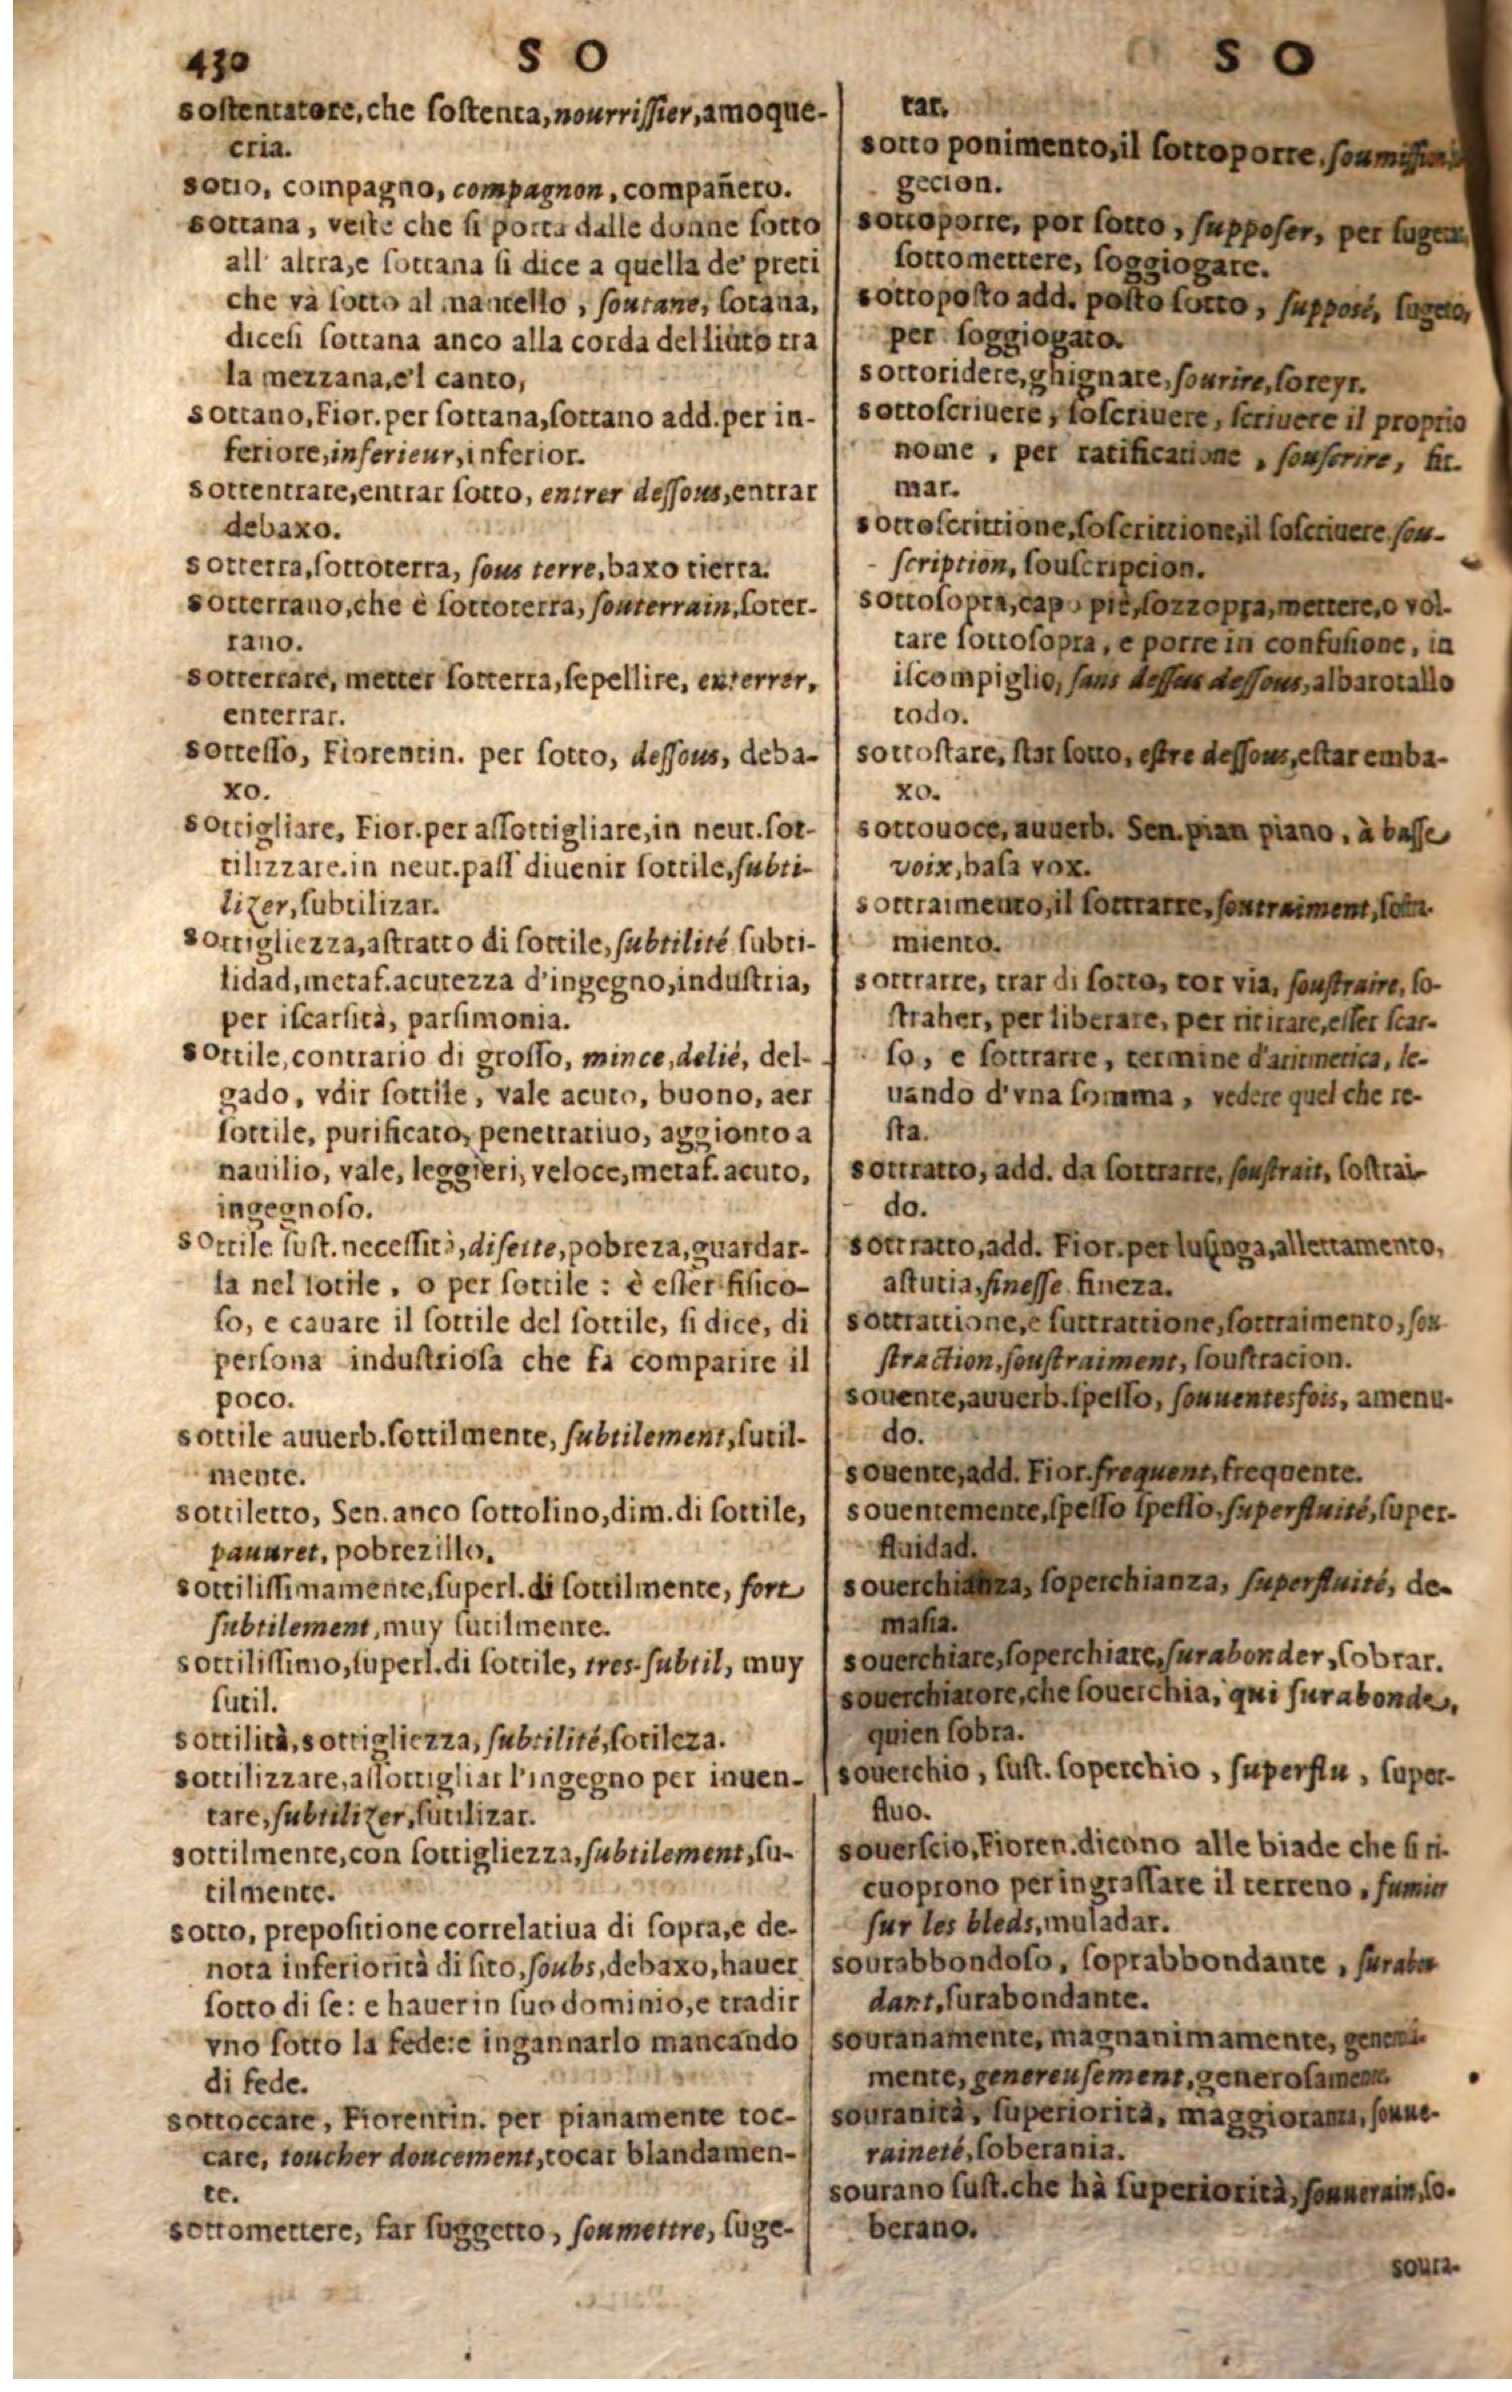 430 S O
sostentatore, che ſoſtenta, nourriſſier, amoque-
cria.
sotio, compagno, compagnon, compañero.
sottana, veste che ſi porta dalle donne ſotto
all' altra, e ſottana ſi dice a quella de' preti
che và ſotto al mantello, ſoutane, ſotana,
diceſi ſottana anco alla corda del liuto tra
la mezzana, e'l canto,
sottano, Fior. per ſottana, ſottano add. per in-
feriore, inferieur, inferior.
sottentrare, entrar ſotto, entrer deſſous, entrar
debaxo.
sotterra, ſottoterra, ſous terre, baxo tierra.
sotterrano, che è ſottoterra, ſouterrain, ſoter-
rano.
sotterrare, metter ſotterra, ſepellire, enterrer,
enterrar.
sotteſſo, Fiorentin. per ſotto, deſſous, deba-
xo.
sottigliare, Fior. per aſſottigliare, in neut. ſot-
tilizzare. in neut. paſſ diuenir ſottile, ſubti-
lizer, ſubtilizar.
sottigliezza, aſtratto di ſottile, ſubtilité ſubti-
lidad, metaf. acutezza d'ingegno, induſtria,
per iſcarſità, parſimonia.
sottile, contrario di groſſo, mince, delié, del-
gado, vdir ſottile, vale acuto, buono, aer
ſottile, purificato, penetratiuo, aggionto a
nauilio, vale, leggieri, veloce, metaf. acuto,
ingegnoſo.
sottile ſuſt. neceſſità, diſette, pobreza, guardar-
la nel ſotile, o per ſottile : è eſſer fiſico-
ſo, e cauare il ſottile del ſottile, ſi dice, di
perſona induſtrioſa che fa comparire il
poco.
sottile auuerb. ſottilmente, ſubtilement, ſutil-
mente.
sottiletto, Sen. anco ſottolino, dim. di ſottile,
pauuret, pobrezillo.
sottiliſſimamente, ſuperl. di ſottilmente, fort
ſubtilement, muy ſutilmente.
sottiliſſimo, ſuperl. di ſottile, tres-ſubtil, muy
ſutil.
sottilità, sottigliezza, ſubtilité, ſotileza.
sottilizzare, aſſottigliar l'ingegno per inuen-
tare, ſubtilizer, ſutilizar.
sottilmente, con ſottigliezza, ſubtilement, ſu-
tilmente.
sotto, prepoſitione correlatiua di ſopra, e de-
nota inferiorità di ſito, ſoubs, debaxo, hauer
ſotto di ſe: e hauer in ſuo dominio, e tradir
vno ſotto la fede: e ingannarlo mancando
di fede.
sottoccare, Fiorentin. per pianamente toc-
care, toucher doucement, tocar blandamen-
te.
sottomettere, far ſuggetto, ſoumettre, ſuge-
S O
tar.
sotto ponimento, il ſottoporre.
gecion.
sottoporre, por ſotto, ſuppoſer, per
ſottomettere, ſoggiogare.
sottopoſto add. poſto ſotto, ſuppoſé, ſugeto,
per ſoggiogato.
sottoridere, ghignare, ſourire, ſoreyr.
sottoſcriuere, ſoſcriuere, ſcriuere il proprio
nome, per ratificatione, ſouſcrire, fir-
mar.
sottoſcrittione, ſoſcrittione, il ſoſcriuere ſou-
ſcription, ſouſcripcion.
sottoſopra, capo piè, ſozzopra, mettere, o vol-
tare ſottoſopra, e porre in confuſione, in
iſcompiglio, ſans deſſus deſſous, albarotallo
todo.
sottoſtare, ſtar ſotto, eſtre deſſous, eſtar emba-
xo.
sottouoce, auuerb. Sen. pian piano, à baſſe
voix, baſa vox.
sottraimento, il ſottrarre, ſoutraiment,
miento.
sottrarre, trar di ſotto, tor via, ſouſtraire, ſo-
ſtraher, per liberare, per ritirare, eſſer ſcar-
ſo, e ſottrarre, termine d'aritmetica, le-
uando d'vna ſomma, vedere quel che re-
ſta.
sottratto, add. da ſottrarre, ſouſtrait, ſoſtrai-
do.
sottratto, add. Fior. per luſinga, allettamento,
aſtutia, fineſſe fineza.
sottrattione, e ſuttrattione, ſottraimento, ſou
ſtraction, ſouſtraiment, ſouſtracion.
souente, auuerb. ſpeſſo, ſouuentesfois, amenu-
do.
souente, add. Fior. frequent, frequente.
souentemente, ſpeſſo ſpeſſo, ſuperfluité, ſuper-
fluidad.
souerchianza, ſoperchianza, ſuperfluité, de-
maſia.
souerchiare, ſoperchiare, ſurabonder, ſobrar.
souerchiatore, che ſouerchia, qui ſurabonde,
quien ſobra.
souerchio, ſuſt. ſoperchio, ſuperflu, ſuper-
fluo.
souerſcio, Fioren. dicono alle biade che ſi ri-
cuoprono per ingraſſare il terreno, fumier
ſur les bleds, muladar.
sourabbondoſo, ſoprabbondante, ſurabon
dant, ſurabondante.
souranamente, magnanimamente,
mente, genereuſement, generoſamente.
souranità, ſuperiorità, maggioranza, ſouue-
raineté, ſoberania.
sourano ſuſt. che hà ſuperiorità, ſouuerain, ſo-
berano.
soura-